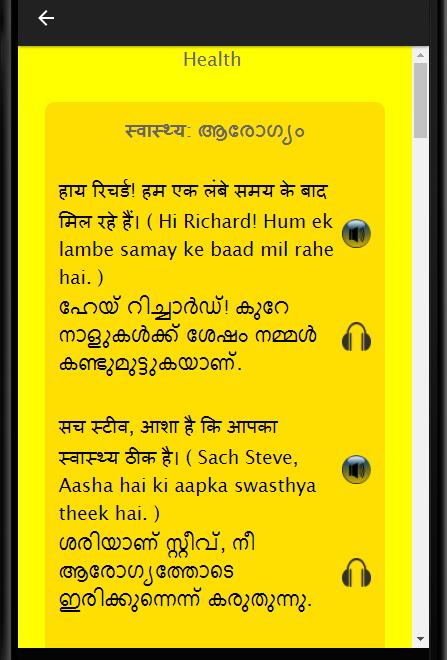 Health
स्वास्थ्य: ആരോഗ്യം
हाय रिचर्ड! हम एक लंबे समय के बाद
मिल रहे हैं। ( Hi Richard! Hum ek
lambe samay ke baad mil rahe
hai. )
ഹേയ് റിച്ചാർഡ്! കുറേ
നാളുകൾക്ക് ശേഷം നമ്മൾ
കണ്ടുമുട്ടുകയാണ്.
सच स्टीव, आशा है कि आपका
स्वास्थ्य ठीक है। ( Sach Steve,
Aasha hai ki aapka swasthya
theek hai. )
ശരിയാണ് സ്റ്റീവ്, നീ
ആരോഗ്യത്തോടെ
ഇരിക്കുന്നെന്ന് കരുതുന്നു.